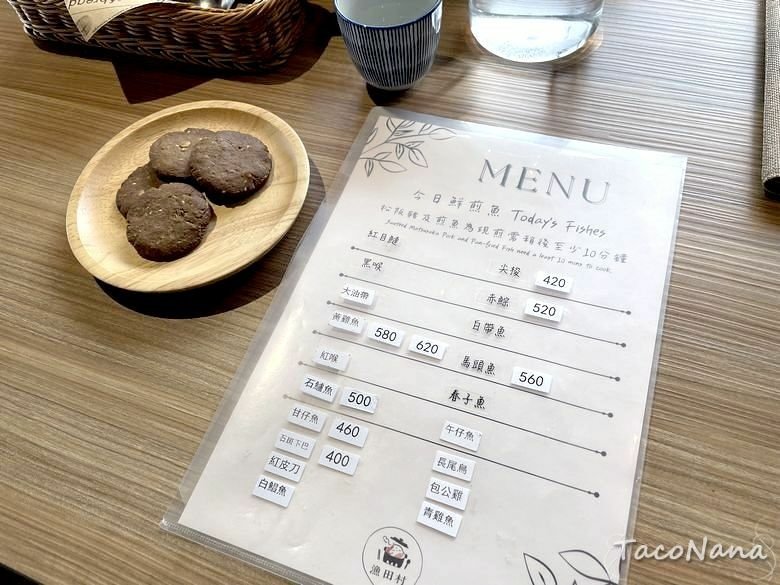 MENU
今日鮮煎魚 Today's Fishes
松阪豬及煎魚為現煎需稍後至少10分鐘
Roasted Matsusaka Pork and Pan-fried Fish need at least 10 mins to cook.
紅目鰱 尖梭 420
黑喉 赤鯮 520
大油帶 白帶魚
黃雞魚 580 620 馬頭魚 560
紅喉 春子魚
石鱸魚 500
甘仔魚 460 午仔魚
石斑下巴 400 長尾鳥
紅皮刀 包公雞
白鯧魚 青雞魚
漁田村
TacoNana